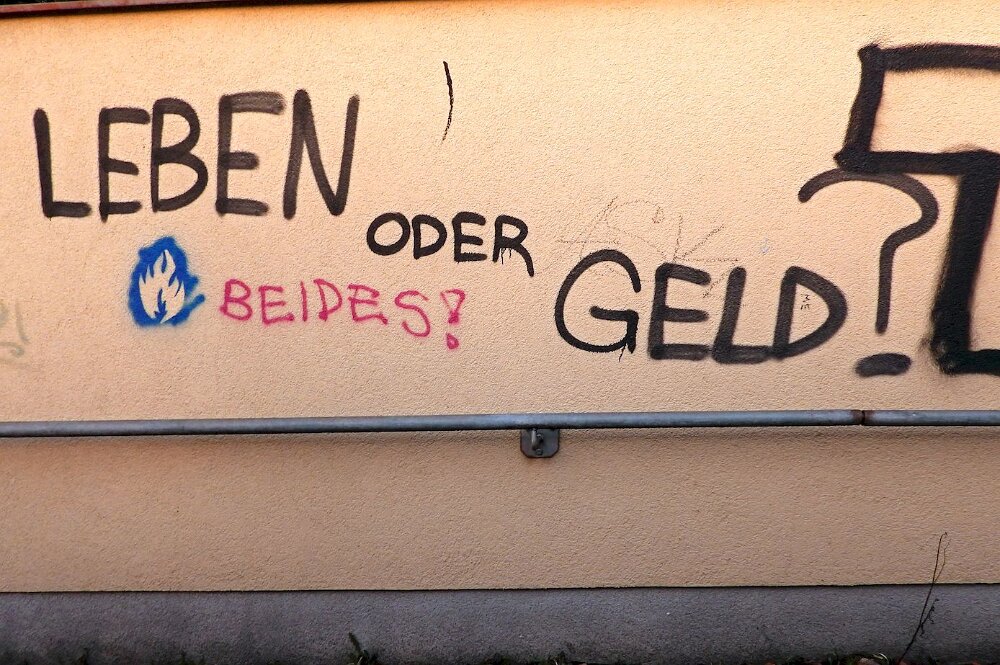 LEBEN
ODER
GELD?
BEIDES!